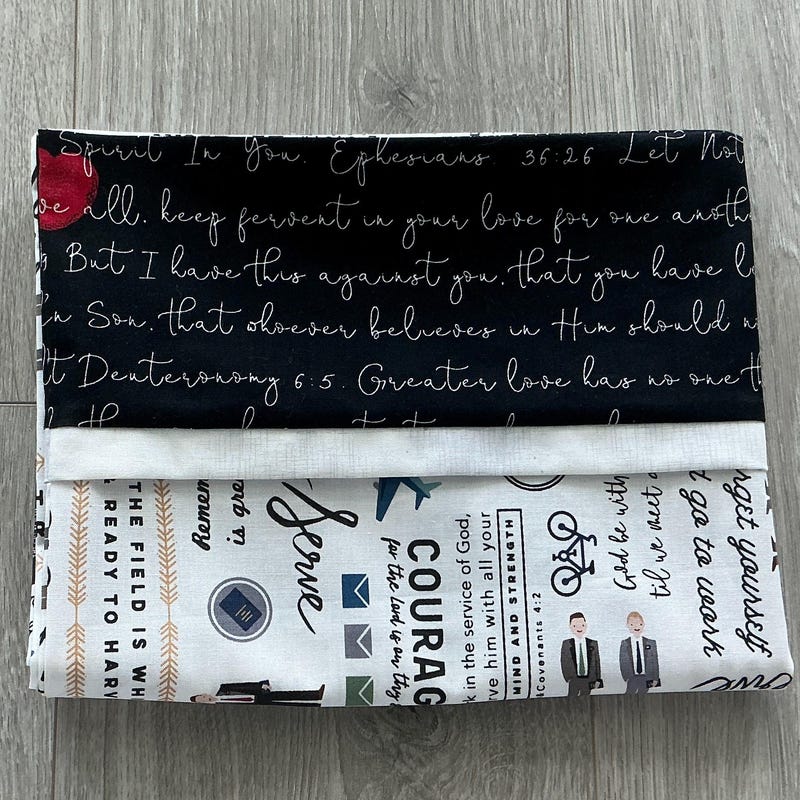 Spirit In You. Ephesians 36:26 Let Not
all. keep fervent in your love for one anoth
But I have this against you. that you have l
n Son. that whoever believes in Him should n
t Deuteronomy 6:5. Greater love has no one th
THE FIELD IS WH
READY TO HARV
Remem
is grea
Serve
COURAG
for the Lord is on thy
k in the service of God,
rve him with all your
MIND AND STRENGTH
Covenants 4:2
God be with
til we meet a
rget yourself
t go to work